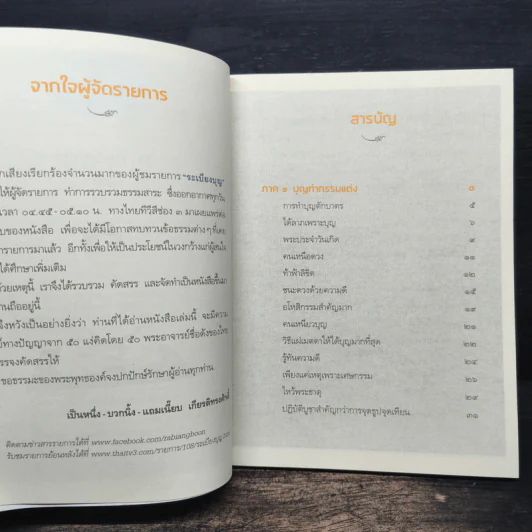 จากใจผู้จัดรายการ
กเสียงเรียกร้องจำนวนมากของผู้ชมรายการ "ระเบียงบุญ"
ให้ผู้จัดรายการ ทำการรวบรวมธรรมสาระ ซึ่งออกอากาศทุกวัน
เวลา ๐๔.๔๕-๐๕.๑๐ น. ทางไทยทีวีสีช่อง ๓ มาเผยแพร่ต่อ
บของหนังสือ เพื่อจะได้มีโอกาสทบทวนข้อธรรมต่างๆ ที่เคย
รายการมาแล้ว อีกทั้งเพื่อให้เป็นประโยชน์ในวงกว้างแก่ผู้สนใจ
ได้ศึกษาเพิ่มเติม
วยเหตุนี้ เราจึงได้รวบรวม คัดสรร และจัดทำเป็นหนังสือขึ้นมา
านถืออยู่นี้
จึงหวังเป็นอย่างยิ่งว่า ท่านที่ได้อ่านหนังสือเล่มนี้ จะมีความ
ทางปัญญาจาก ๕๐ แง่คิดโดย ๕๐ พระอาจารย์ชื่อดังของไทย
รรจงคัดสรรให้
ขอธรรมะของพระพุทธองค์จงปกปักษ์รักษาผู้อ่านทุกท่าน
เป็นหนึ่ง - บวกนิ้ง - แถมเนี๊ยบ เกียรติทรงศักดิ์
ติดตามข่าวสารรายการได้ที่ www.facebook.com/rabiangboon
รับชมรายการย้อนหลังได้ที่ www.thaitv3.com/รายการ/108/ระเบียงบุญ
สารบัญ
ภาค ๑ บุญทำกรรมแต่ง ๑
การทำบุญตักบาตร ๕
ได้ลาภเพราะบุญ ๖
พระประจำวันเกิด ๙
คนเหนือดวง ๑๑
ท้าฟ้าลิขิต ๑๒
ชนะดวงด้วยความดี ๑๕
อโหสิกรรมสำคัญมาก ๑๙
คนเหนี่ยวบุญ ๒๑
วิธีแผ่เมตตาให้ได้บุญมากที่สุด ๒๒
รู้ทันความดี ๒๔
เพียงแค่เหตุเพราะเศษกรรม ๒๖
ไหว้พระธาตุ ๒๙
ปฏิบัติบูชาสำคัญกว่าการจุดธูปจุดเทียน ๓๑